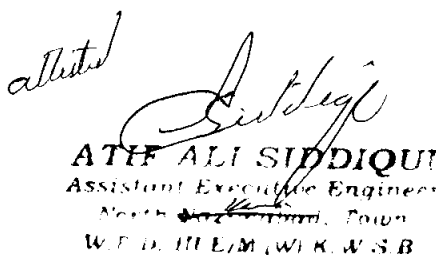 attested
Siddiqi
ATIF ALI SIDDIQUI
Assistant Executive Engineer
North Town
W.T.D. III E/M (W) K.W.S.B